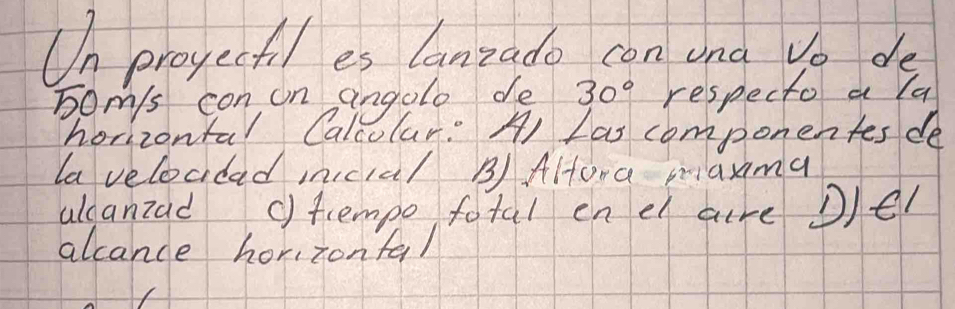 Un proyectil es lanzado con una Vo de
50m/s con un angolo de 30° respecto a la
horizontal Calcolar: A) Las componentes de
la velocidad inicial B) Altura maxima
alcanzad C) tiempo total en el aire D) El
alcance horizontal